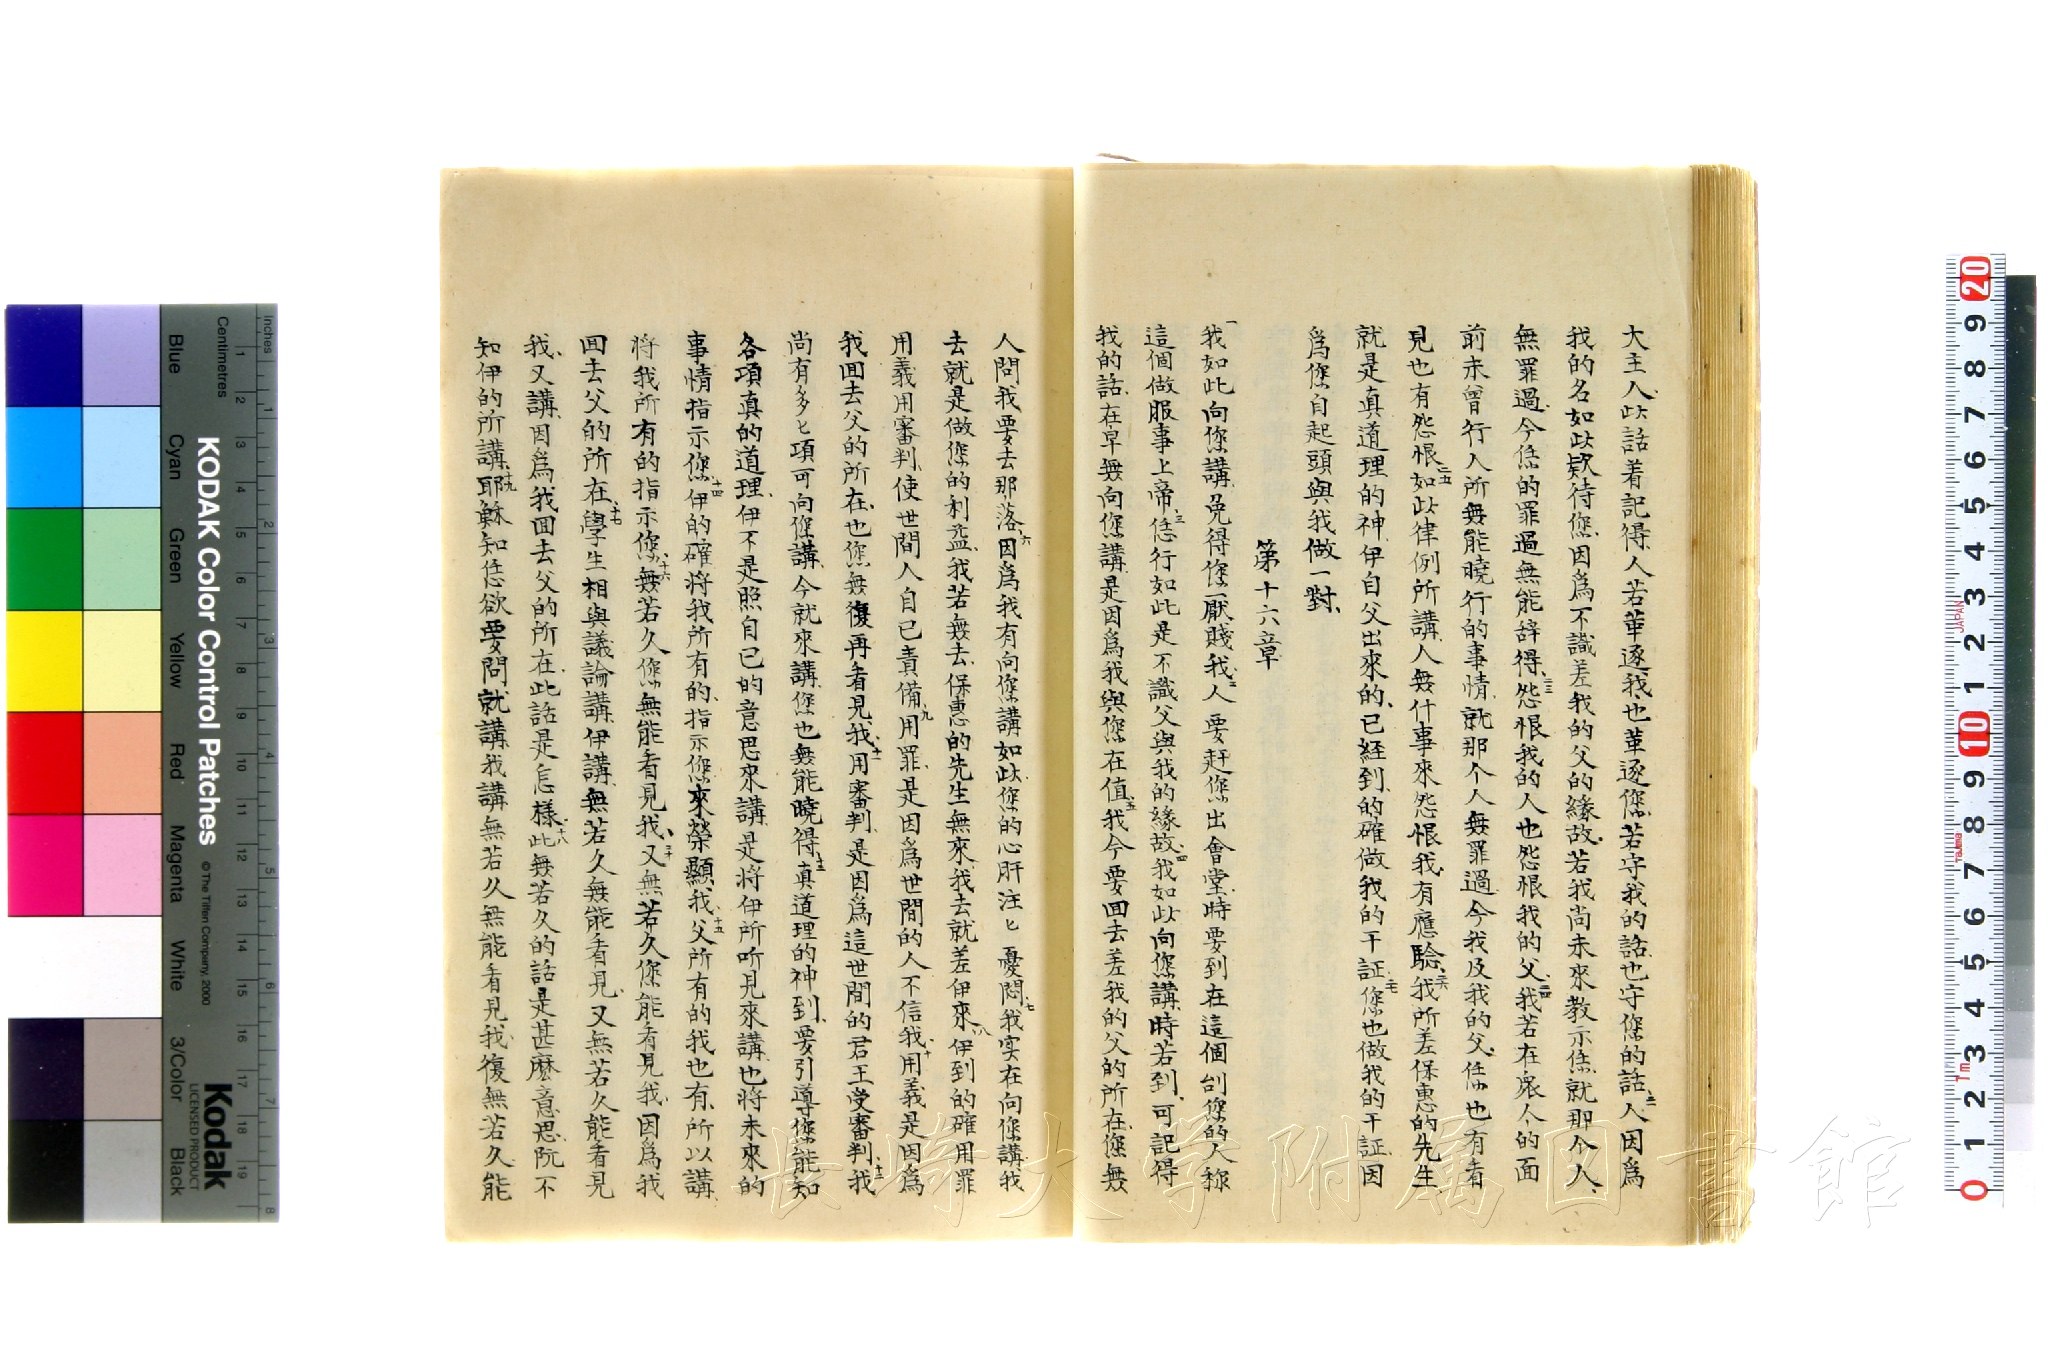 大主人、此話着記得、人若葦逐我也葦逐您、若守我的話也守您的話、二一人因爲
我的名如此欵待您、因爲不識差我的父的緣故、若我尚未來教示恁、就那个人、
無罪過、今恁的罪過無能辞得、二三怨恨我的人也怨恨我的父、二四我若在衆人的面
前未曾行人所無能曉行的事情、就那个人無罪過、今我及我的父、恁也有看
見也有怨恨、二五如此律例所講、人無什事來怨恨我、有應驗、二六我所差保惠的先生
就是真道理的神、伊自父出來的、已經到、的確做我的干証、二七您也做我的干証、因
爲您自起頭與我做一對、
第十六章
一我如此向您講、免得您厭賤我、二人要赶您出會堂、時要到、在這個刣您的人称
這個做服事上帝、三恁行如此是不識父與我的緣故、四我如此向您講、時若到、可記得
我的話、在早無向您講、是因爲我與您在值、五我今要回去差我的父的所在、您無
人問我要去那落、六因爲我有向您講如此、您的心肝注〻憂悶、七我实在向您講、我
去就是做您的利益、我若無去、保惠的先生無來、我去就差伊來、八伊到的確用罪
用義用審判、使世間人自己責備、九用罪、是因爲世間的人不信我、十用義是因爲
我回去父的所在、也您無復再看見我、十一用審判、是因爲這世間的君王受審判、十二我
尚有多〻項可向您講、今就來講、您也無能曉得、十三真道理的神到、要引導您能知
各項真的道理、伊不是照自己的意思來講、是將伊所听見來講、也將未來的
事情指示您、十四伊的確將我所有的、指示您、來榮顯我、十五父所有的我也有、所以講
將我所有的指示您、十六無若久您無能看見我、又無若久您能看見我、因爲我
回去父的所在、十七學生相與議論講、伊講、無若久無能看見、又無若久能看見
我、又講、因爲我回去父的所在、此話是怎樣、十八此無若久的話是甚麽意思、阮不
知伊的所講、十九耶穌知恁欲要問就講、我講無若久無能看見我、復無若久能
KODAK Color Control Patches
© The Tiffen Company, 2000
Kodak
LICENSED PRODUCT
Inches
Centimetres
Blue
Cyan
Green
Yellow
Red
Magenta
White
3/Color
Black
JAPAN
Tajima
1m
長崎大学附属図書館